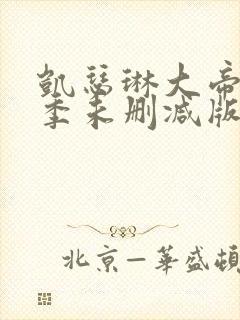 凱瑟琳大帝
季未删减版
北京—華盛頓